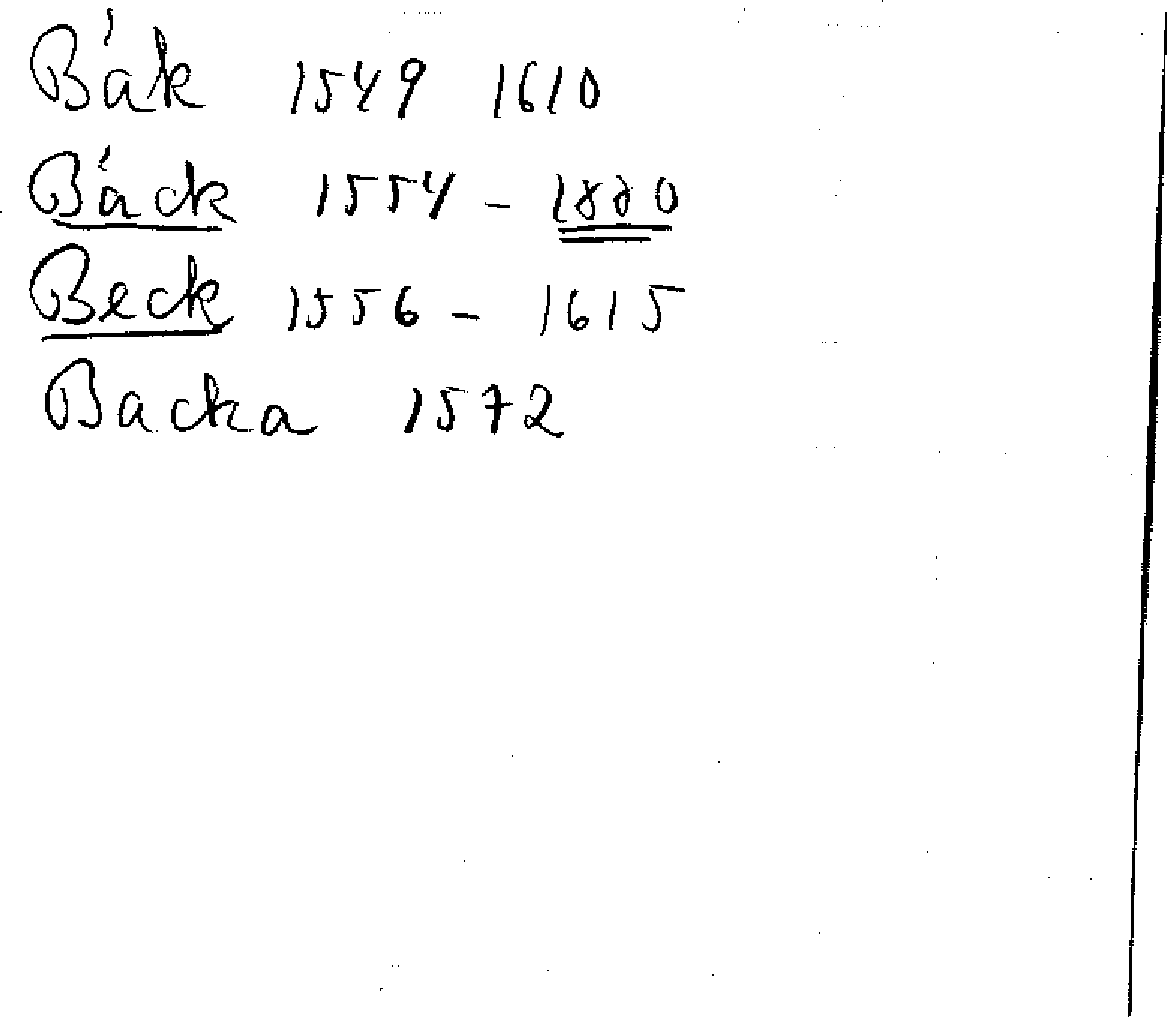 Bák 1549 1610
Báck 1554 - 1880
Beck 1556 - 1615
Backa 1572